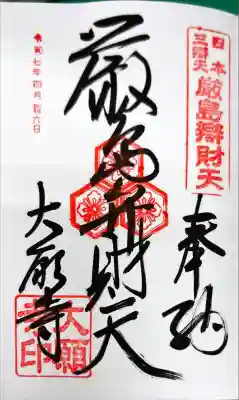 日本
三辯天
厳島辯財天
奉納
厳島弁財天
大願寺
令和七年四月廿六日
大願
寺印